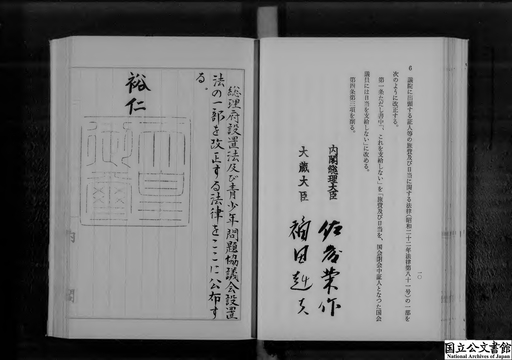 6　議院に出頭する証人等の旅費及び日当に関する法律(昭和二十二年法律第八十一号)の一部を
次のように改正する。
第一条ただし書中「これを支給しない」を「旅費及び日当を、国会閉会中証人となつた国会
議員には日当を支給しない」に改める。
第四条第三項を削る。
一〇
内閣総理大臣　佐藤栄作
大蔵大臣　福田赳夫
総理府設置法及び青少年問題協議会設置
法の一部を改正する法律をここに公布す
る。
裕仁
天皇御璽
国立公文書館
National Archives of Japan